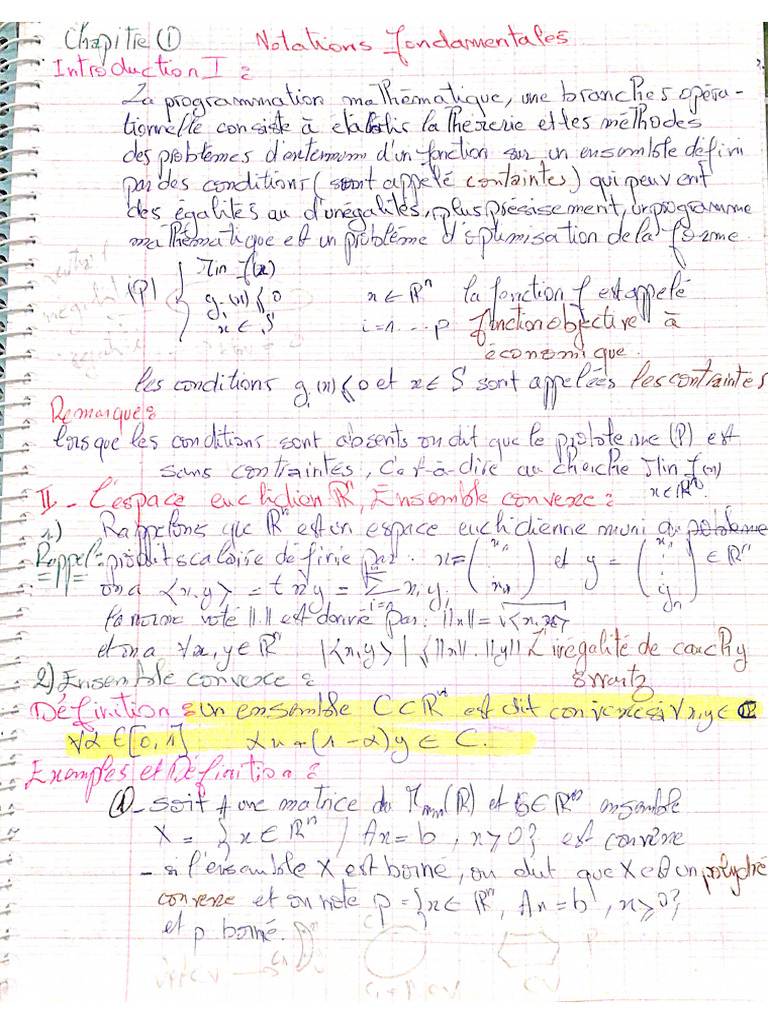 Chapitre ① Notations fondamentales
Introduction I :
La programmation mathématique, une branches opéra-
tionnelle consiste à établir la thérerie et les méthodes
des problèmes d'extemum d'un fonction sur un ensemble défini
par des conditions (sont appelé containtes) qui peuvent
des égalités au d'unégalités, plus présisement, un programme
mathématique est un problème d'optimisation de la forme.
(P) { Min f(x)
gᵢ(x) ≤ 0 x ∈ ℝⁿ la fonction f est appelé
x ∈ S i=1 .... p fonction objective à
économique.
les conditions gᵢ(x) ≤ 0 et x ∈ S sont appelées les contraintes
Remarque :
lorsque les conditions sont absents on dit que le problème (P) est
sans contraintes, C'est-à-dire au cherche Min f(x)
x ∈ ℝⁿ.
II - L'espace euclidien ℝⁿ, Ensemble convexe :
1) Rappelons que ℝⁿ est un espace euclidienne muni du
Rappel : produit scaloire définie par . x = (x₁ ⋮ xₙ) et y = (y₁ ⋮ yₙ) ∈ ℝⁿ
on a <x,y> = txy = Σ xᵢyᵢ i=1
la norme noté ||.|| est donné par : ||x|| = √<x,x>
et on a ∀x,y ∈ ℝⁿ |<x,y>| ≤ ||x|| . ||y|| L'inegalité de cauchy
swartz
2) Ensemble convexe :
Définition : un ensemble C ⊂ ℝⁿ est dit convexe si ∀x,y ∈ C
∀α ∈ [0,1] αx + (1-α)y ∈ C.
Examples et Définition :
① - soit A une matrice du Mₘₙ(ℝ) et b ∈ ℝᵐ ensemble
X = {x ∈ ℝⁿ / Ax = b , x ≥ 0} est convexe
- si l'ensemble X est borné, on dit que X est un polyèdre
convexe et on note p = {x ∈ ℝⁿ, Ax = b , x ≥ 0}
et p borné.